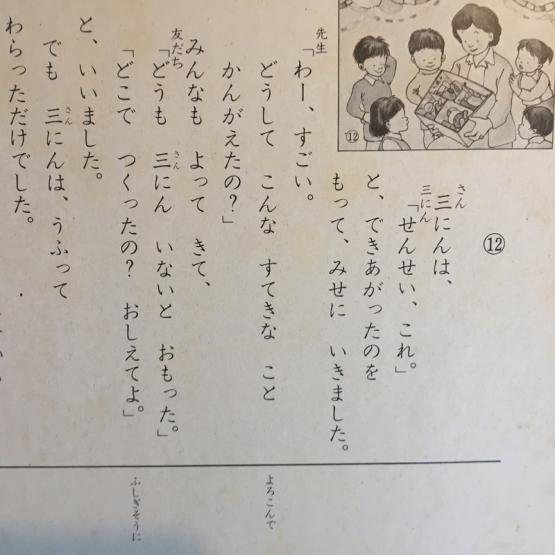 ⑫
三にんは、
さん
「せんせい、これ。」
三にん
と、できあがったのを
もって、みせに いきました。
「わー、すごい。
先生
どうして こんな すてきな こと
かんがえたの?」
よろこんで
みんなも よって きて、
「どうも 三にん いないと おもった。」
友だち
さん
「どこで つくったの? おしえてよ。」
ふしぎそうに
と、いいました。
でも 三にんは、うふって
さん
わらっただけでした。
⑫